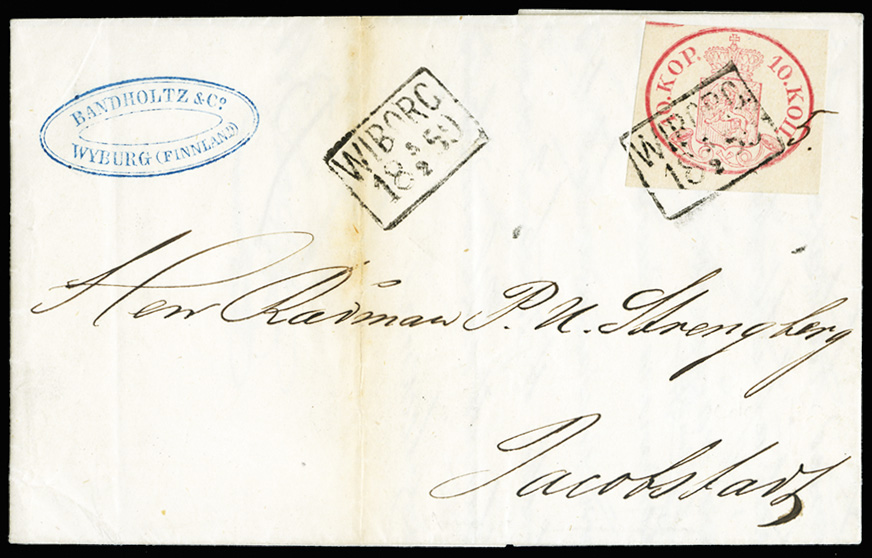 BANDHOLTZ & Cº
WYBURG (FINNLAND)
WIBORG
18 5/2 59
10. KOP. 10. КОП.
WIBORG
18
5.
Herr Rådman P. U. Strengberg
Jacobstad